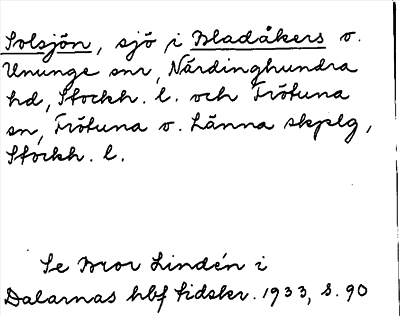 Solsjön, sjö i Bladåkers o.
Ununge snr, Närdinghundra
hd, Stockh. l. och Frötuna
sn, Frötuna o. Länna skplg,
Stockh. l.
Se Bror Lindén i
Dalarnas hbf tidskr. 1933, s. 90